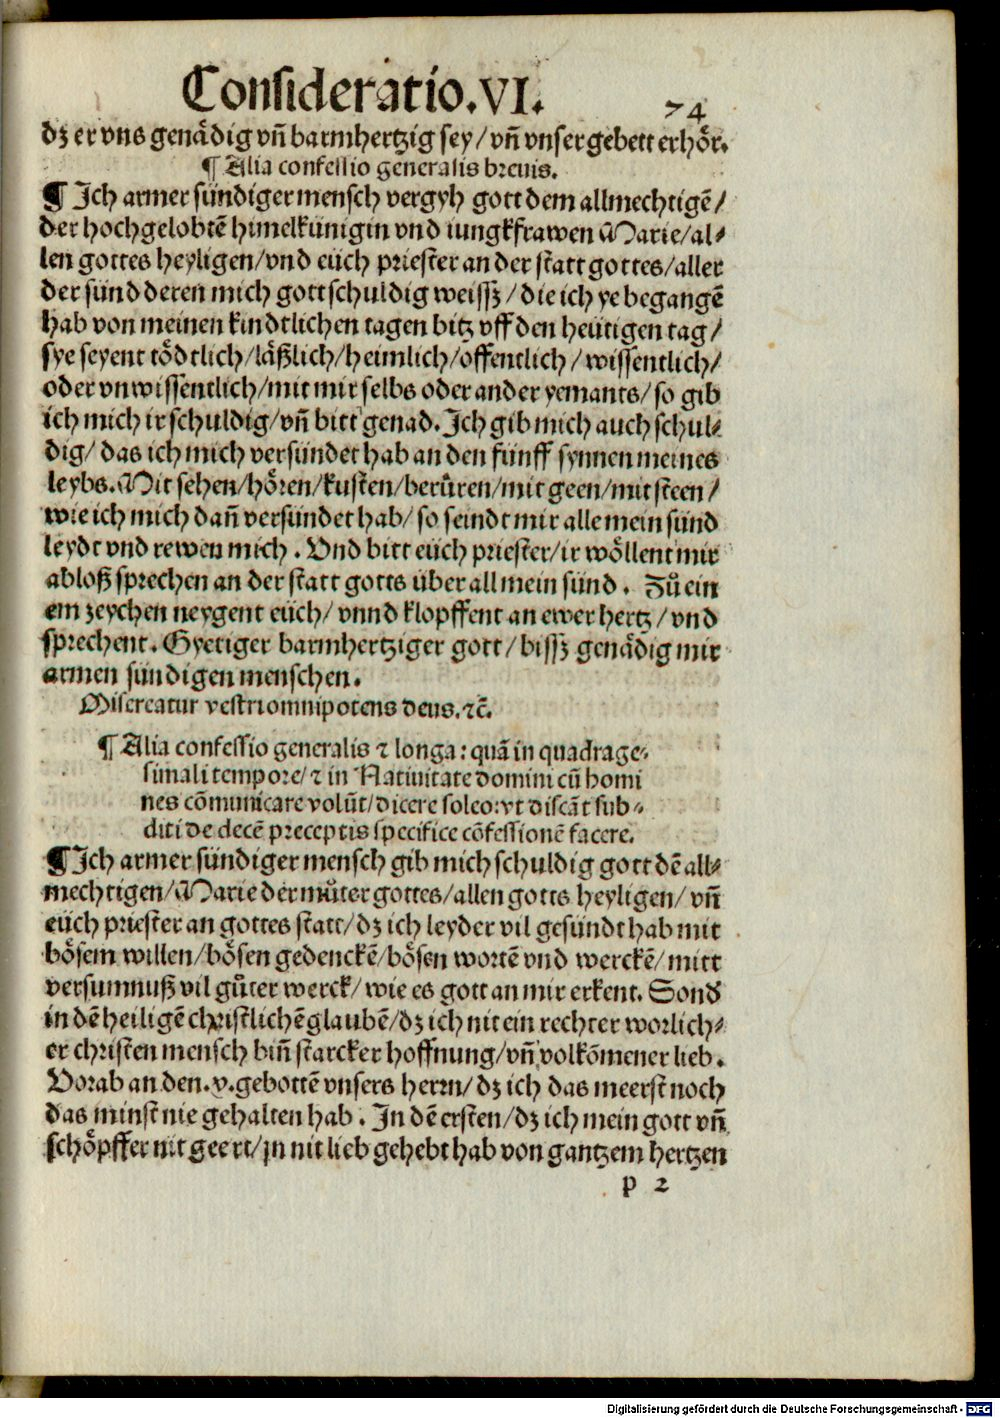 Consideratio.VI. 74
dz er vns genådig vñ barmhertzig sey/ vñ vnser gebett erhör.
¶ Alia confessio generalis breuis.
¶ Ich armer sündiger mensch vergyh gott dem allmechtigē/
der hochgelobtē himelkünigin vnd iungkfrawen Marie/al⸗
len gottes heyligen/vnd eüch priester an der statt gottes/aller
der sünd deren mich gott schuldig weissz/die ich ye begangē
hab von meinen kindtlichen tagen bitz vff den heütigen tag/
sye seyent tödtlich/läßlich/heimlich/offentlich/wissentlich/
oder vnwissentlich/mit mir selbs oder ander yemants/so gib
ich mich ir schuldig/vñ bitt genad. Ich gib mich auch schul⸗
dig/ das ich mich versündet hab an den fünff synnen meines
leybs. Mit sehen/hören/kusten/berůren/mit geen/mit steen/
wie ich mich dañ versündet hab/so seindt mir alle mein sünd
leydt vnd rewen mich. Vnd bitt eüch priester/ir wöllent mir
abloß sprechen an der statt gotts über all mein sünd. Zů ein
em zeychen neygent eüch/ vnnd klopffent an ewer hertz/vnd
sprechent. Gyetiger barmhertziger gott/bissz genådig mir
armen sündigen menschen.
Misereatur vestri omnipotens deus.⁊c̄.
¶ Alia confessio generalis ⁊ longa: quā in quadrage⸗
simali tempore/⁊ in Natiuitate domini cū homi
nes cōmunicare volūt/dicere soleo:vt discāt sub⸗
diti de decē preceptis specifice cōfessionē facere.
¶ Ich armer sündiger mensch gib mich schuldig gott dē all⸗
mechtigen/Marie der můter gottes/allen gotts heyligen/ vñ
eüch priester an gottes statt/dz ich leyder vil gesündt hab mit
bösem willen/bösen gedenckē/bösen wortē vnd werckē/mitt
versumnuß vil gůter werck/wie es gott an mir erkent. Sond̄
in dē heiligē christlichē glaubē/dz ich nit ein rechter worlich⸗
er christen mensch biñ starcker hoffnung/vñ volkōmener lieb.
Vorab an den.x.gebottē vnsers herrn/dz ich das meerst noch
das minst nie gehalten hab. In dē ersten/dz ich mein gott vñ
schöpffer nit geert/jn nit lieb gehebt hab von gantzem hertzen
p 2
Digitalisierung gefördert durch die Deutsche Forschungsgemeinschaft - DFG